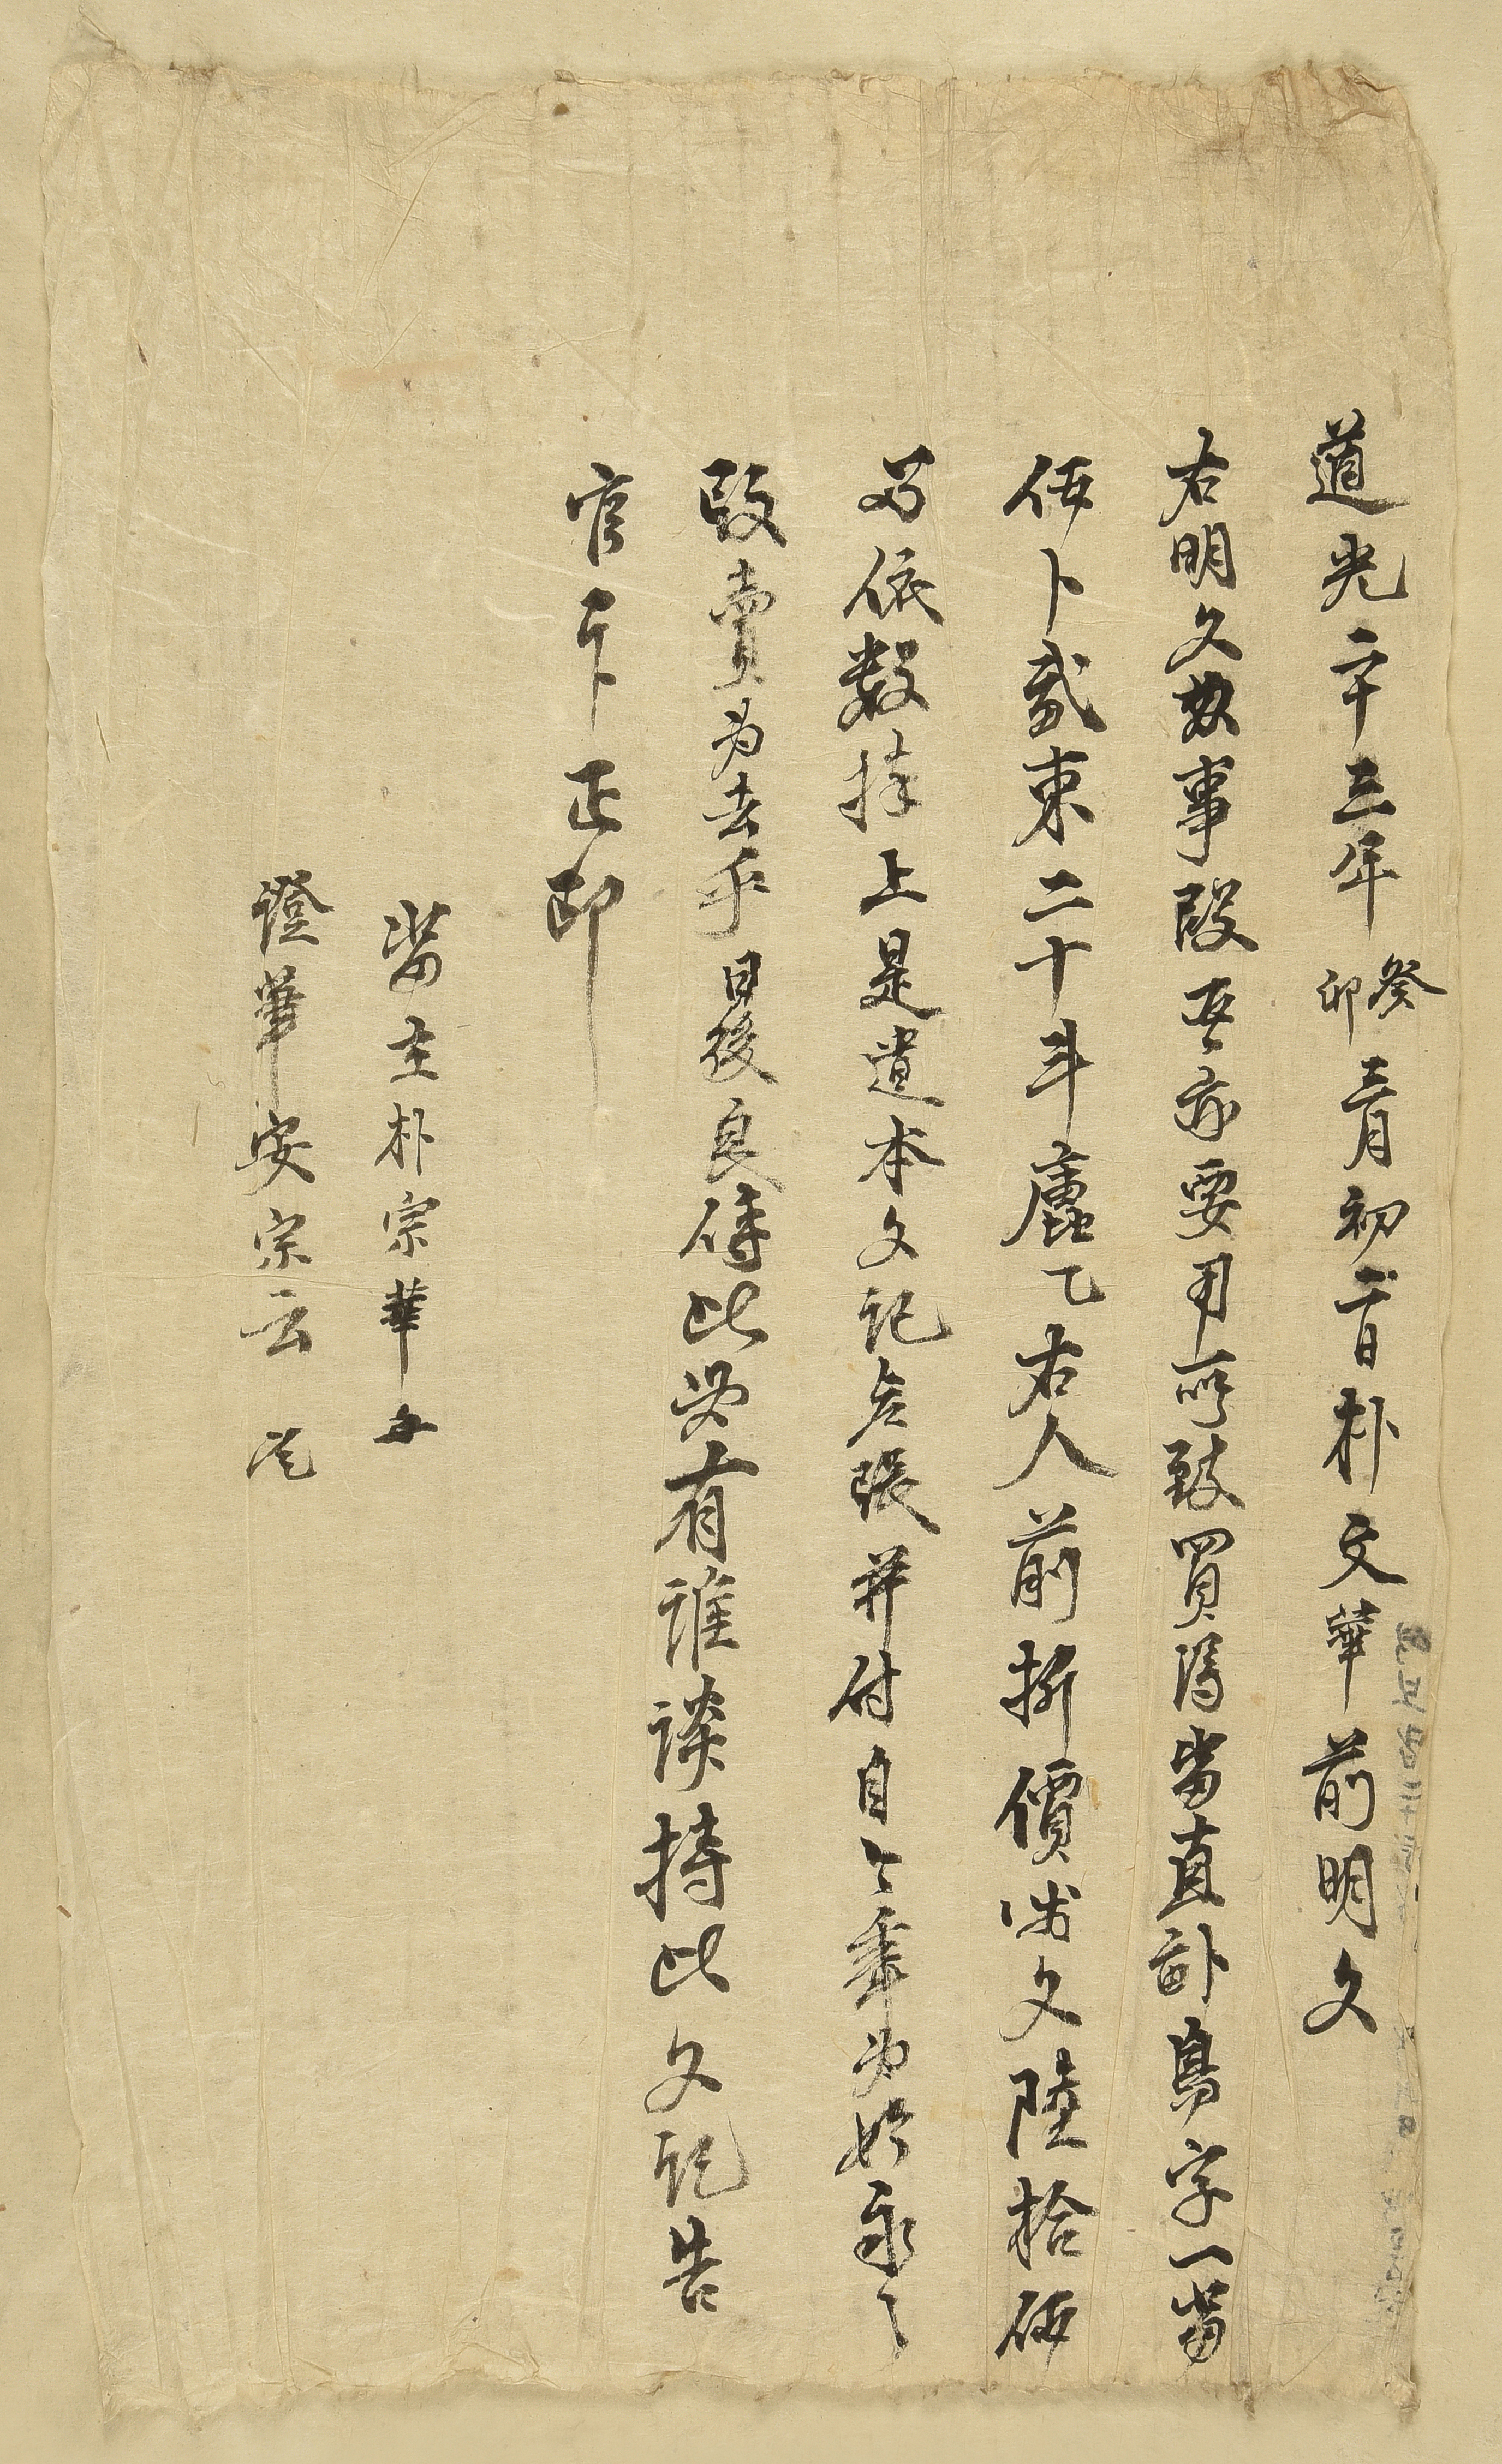 道光二十三年癸卯三月初二日朴文華前明文
右明文事段吾亦要用所致買得畓直鳥字一畓
伍卜貳束二十斗乙右人前折價文陸拾伍
兩依數捧上是遣本文記張并付自今年為始永〻
放賣為去乎日後良此必有誰談持此文記告
官卞正印
畓主朴宗華
證筆安宗云